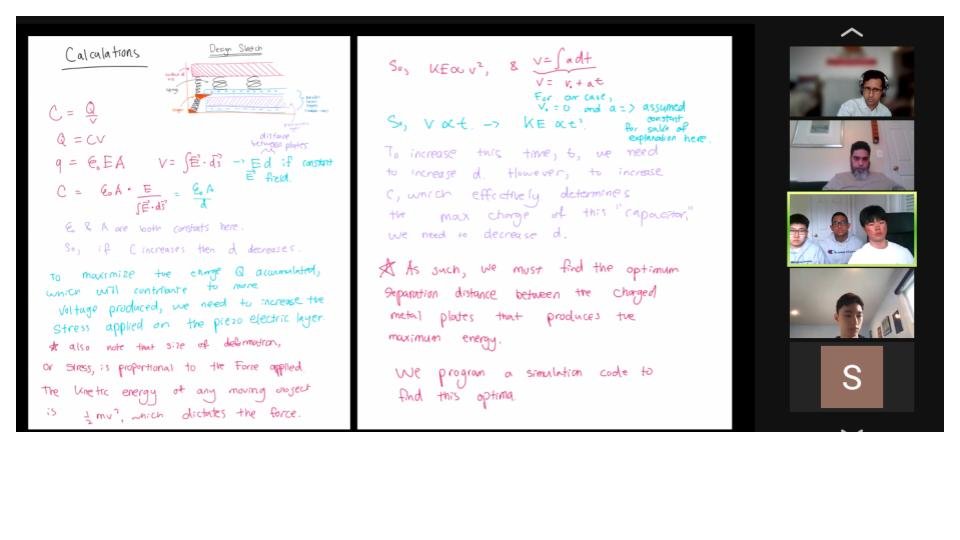 Calculations
Design Sketch
C = Q/V
Q = CV
q = ε₀EA V = ∫E⃗·ds⃗ → Ed if constant
E⃗ field.
distance
between plates
C = ε₀A · E/∫E⃗·ds⃗ = ε₀A/d
E & A are both constats here.
So, if C increases then d decreases.
To maximize the charge Q accumulated,
which will contribute to more
voltage produced, we need to increase the
stress applied on the piezo electric layer.
* also note that size of deformation,
or stress, is proportional to the Force applied
The kinetic energy of any moving object
is ½mv², which dictates the force.
So, KE∝v², & v = ∫a dt
v = v₀ + at
For our case,
v₀ = 0 and a => assumed
constant
for sake of
explanation here.
So, v ∝ t. → KE ∝ t².
To increase this time, t, we need
to increase d. However, to increase
C, which effectively determines
the max charge of this "capacitor,"
we need to decrease d.
* As such, we must find the optimum
separation distance between the charged
metal plates that produces the
maximum energy.
We program a simulation code to
find this optima.
S